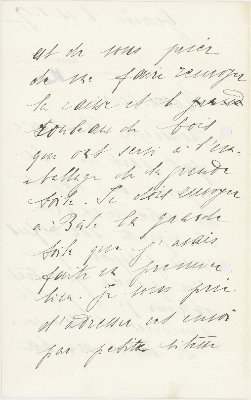 est de vous prier
de me faire renvoyer
la caisse et le grand
rouleau de bois
qui ont servi à l'em-
ballage de la grande
toile. Je dois envoyer
à Bâle la grande
toile que j'avais
faite en premier
lieu. Je vous prie
d'adresser cet envoi
par petite vitesse